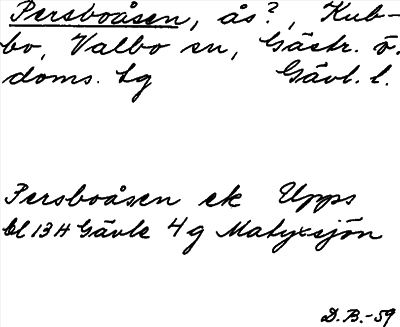 Persboåsen, ås?, Kub-
bo, Valbo sn, Gästr. ö.
doms. lg Gävl. l.
Persboåsen ek Upps
bl 13H Gävle 4g Matyxsjön
D.B.-59